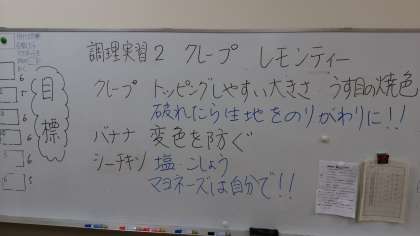 調理実習2 クレープ レモンティー
目標
クレープ トッピングしやすい大きさ うす目の焼色
破れたら生地をのりがわりに!!
バナナ 変色を防ぐ
シーチキン 塩 こしょう
マヨネーズは自分で!!